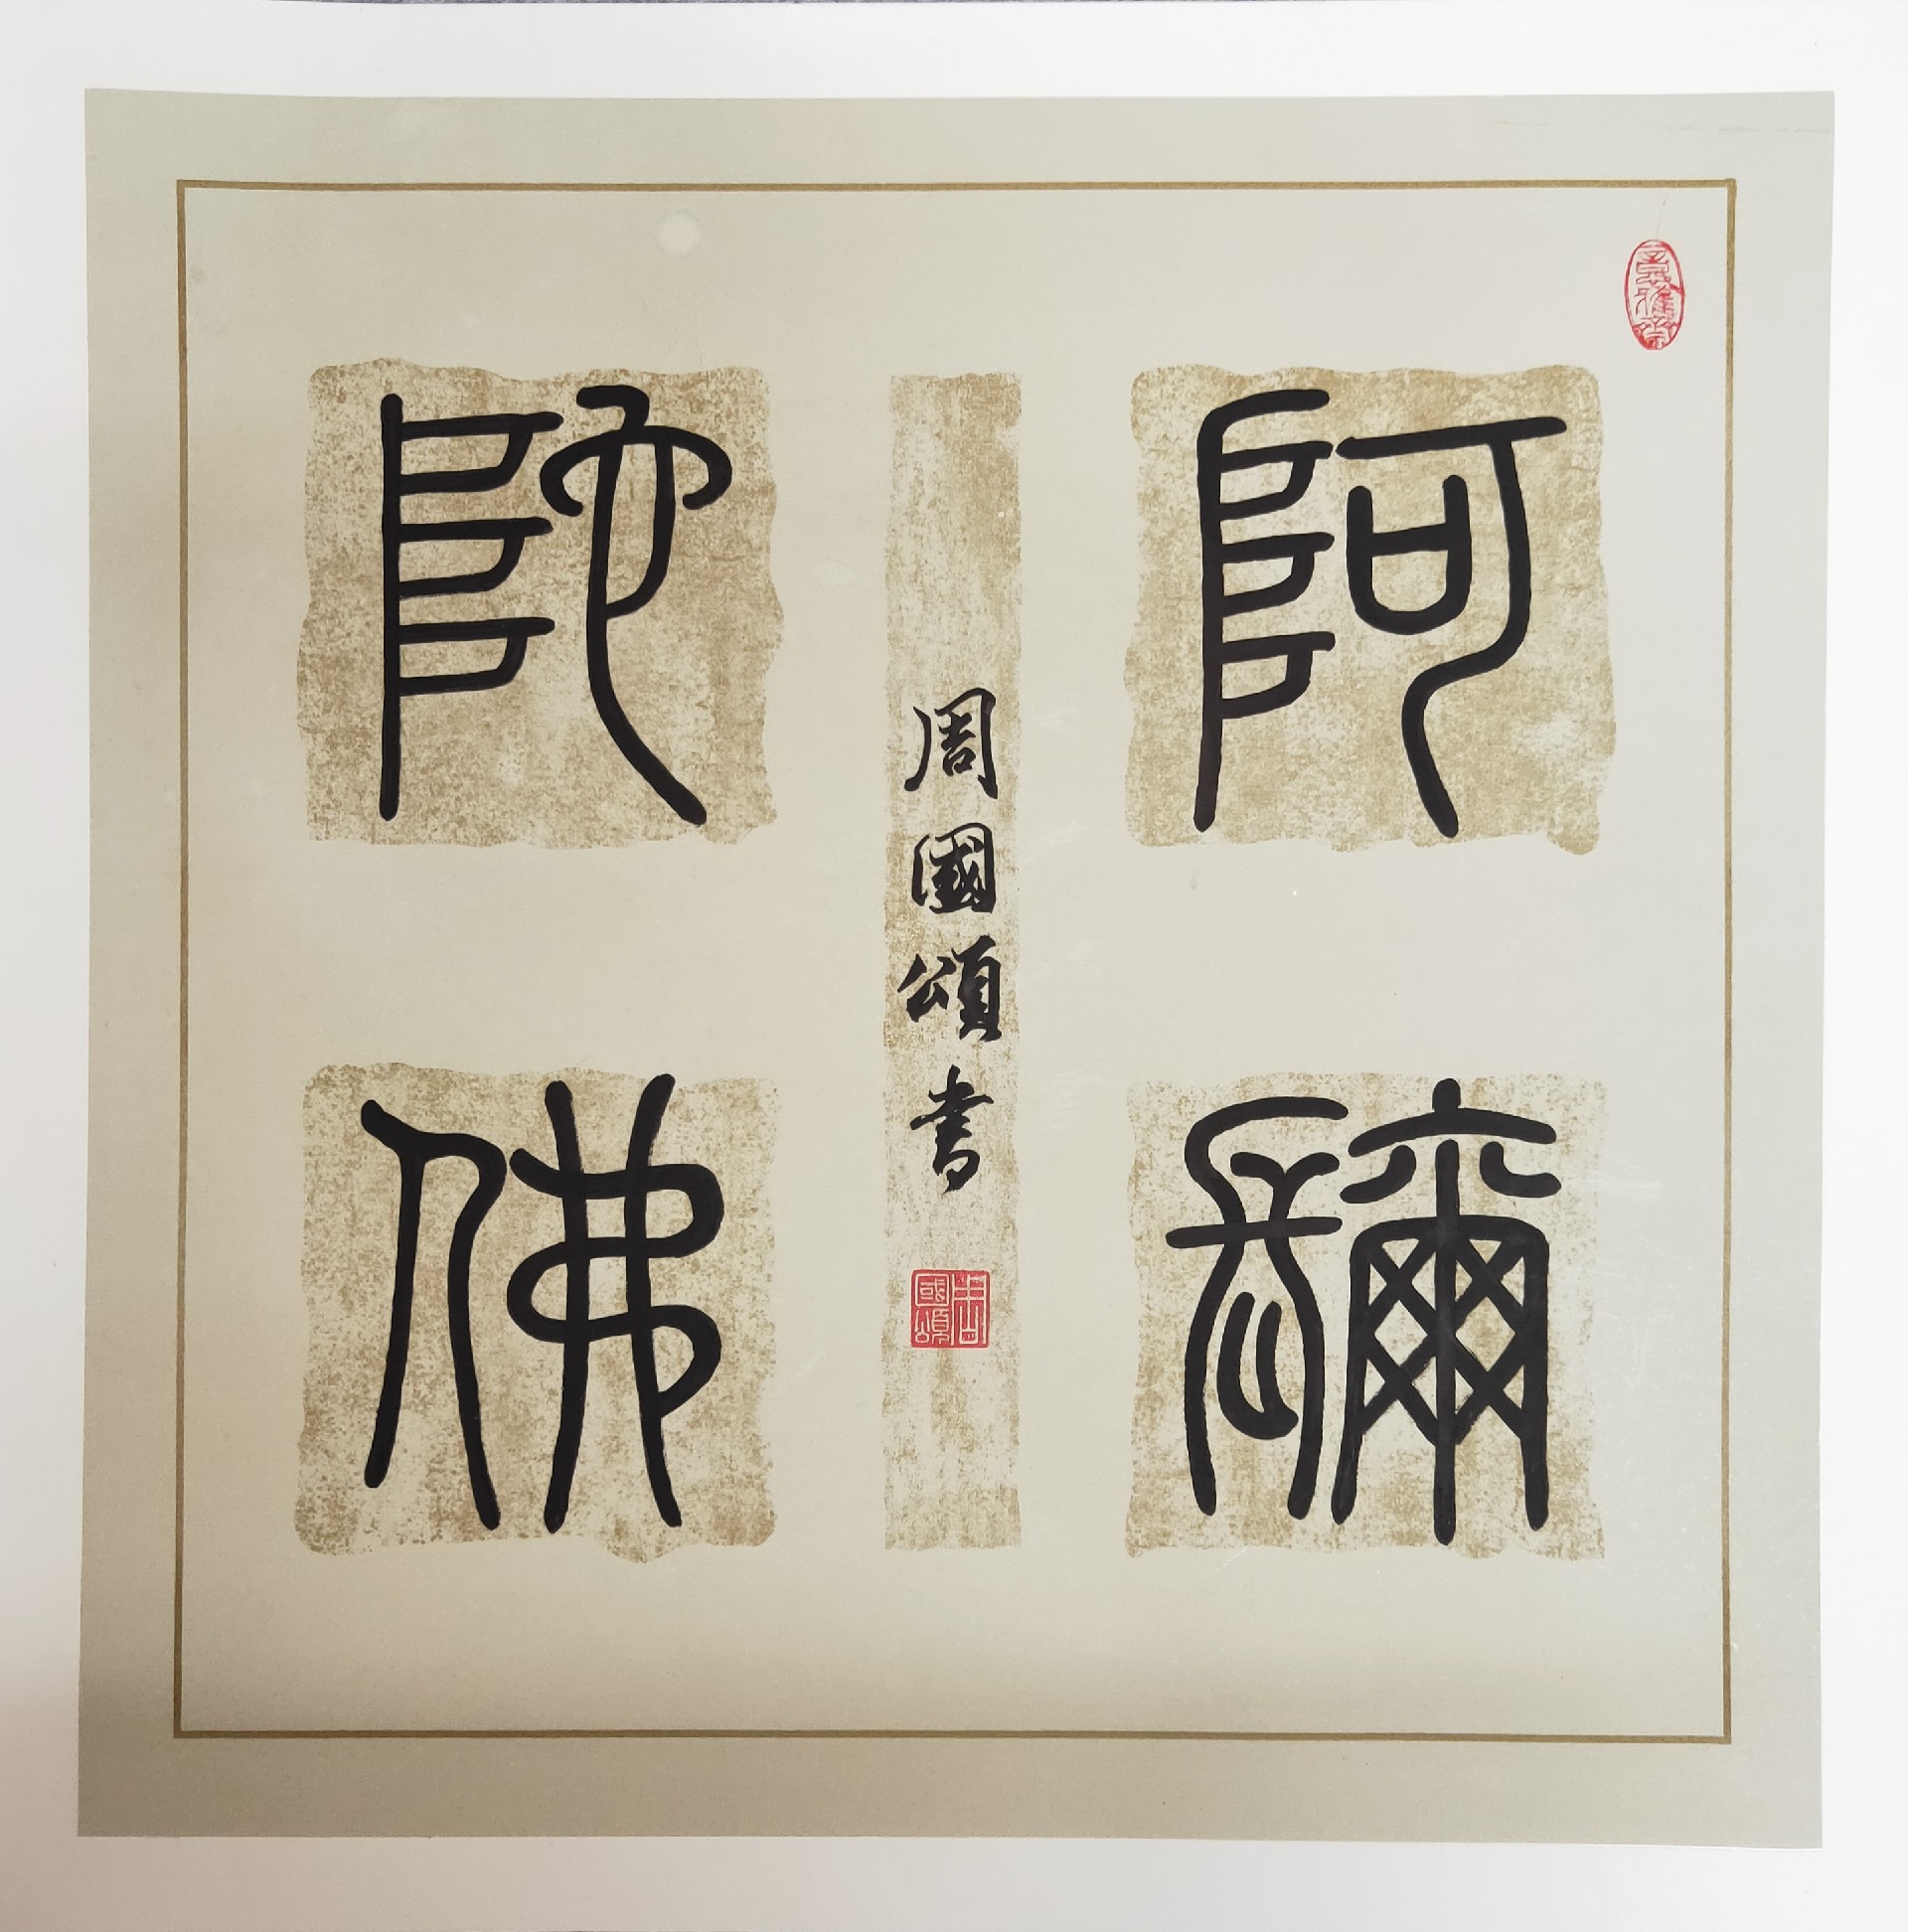 阿彌
陀佛
周國頌書
國頌